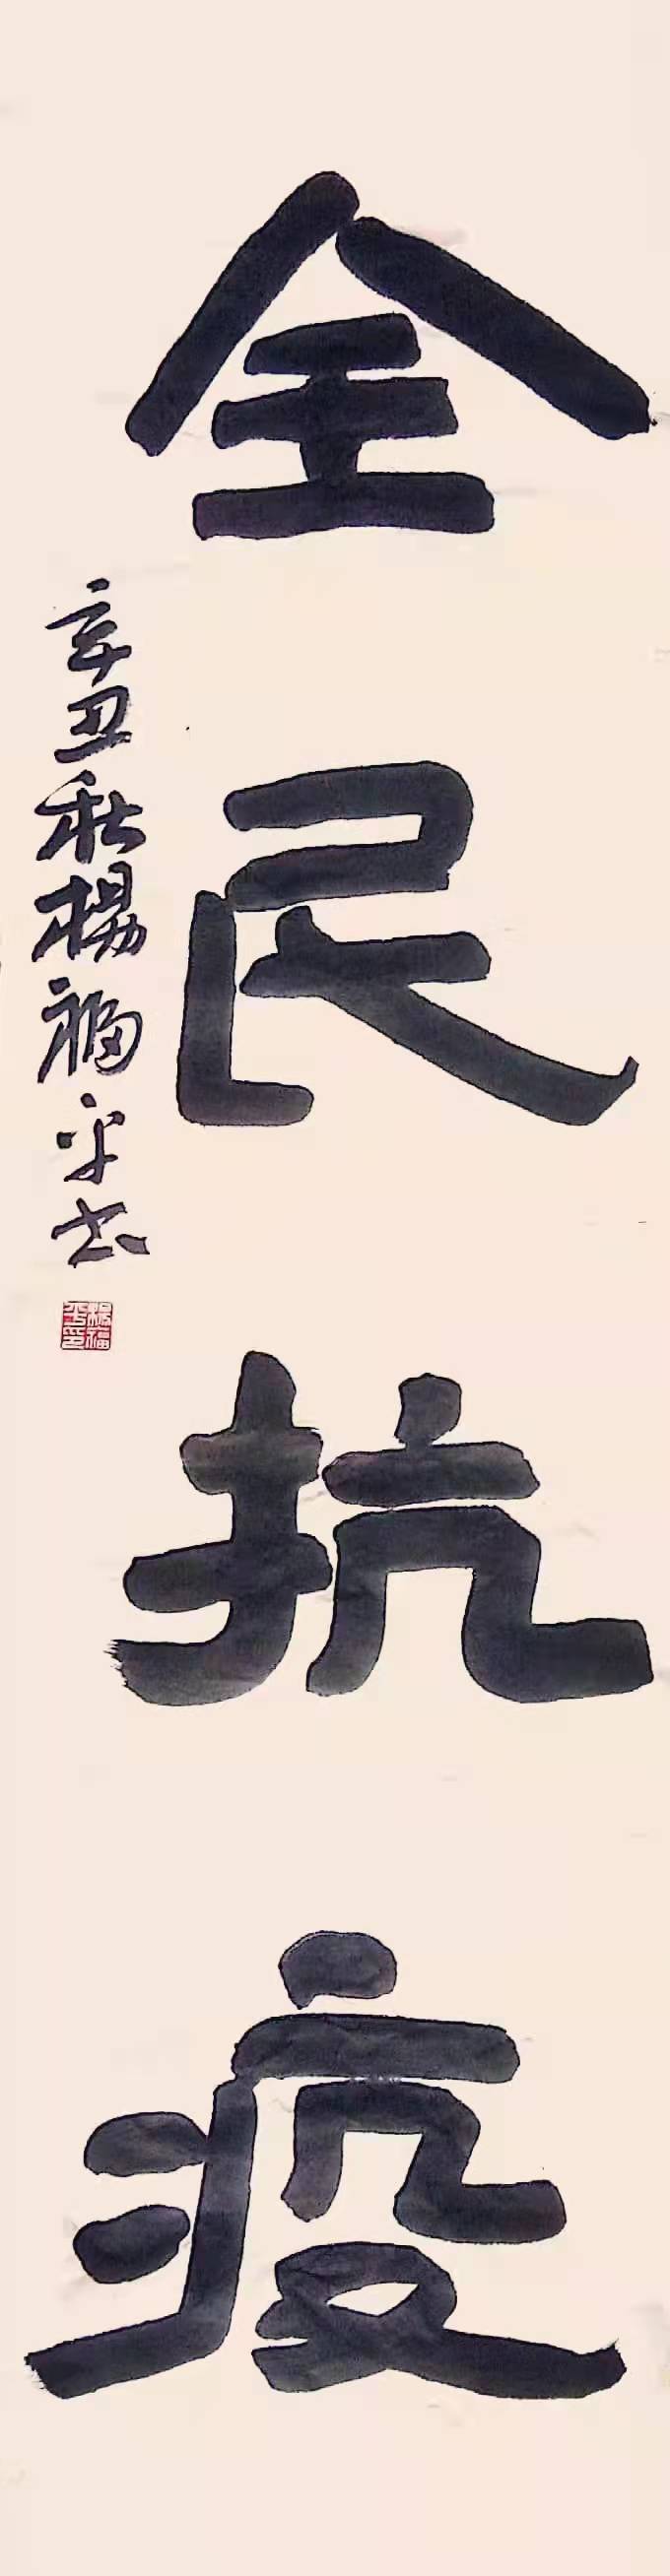 全民抗疫
辛丑秋楊福平书
楊福平印